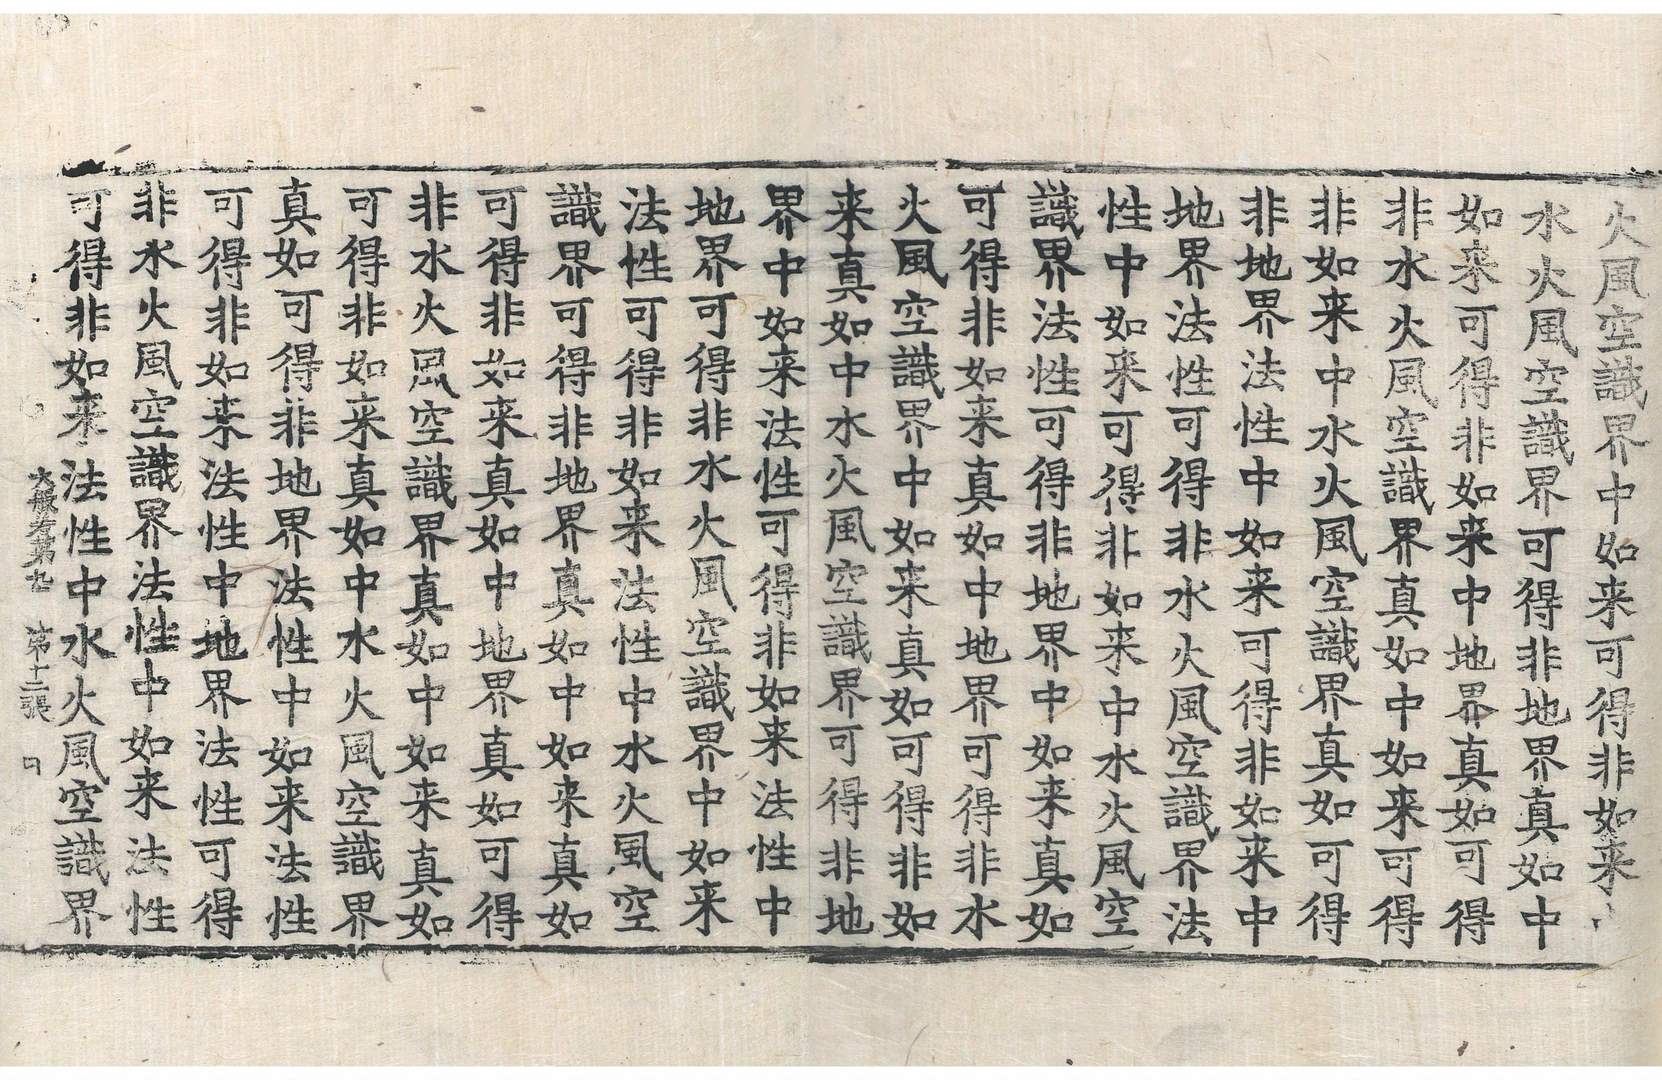 火風空識界中如来可得非如来
水火風空識界可得非地界真如中
如来可得非如来中地界真如可得
非水火風空識界真如中如来可得
非如来中水火風空識界真如可得
非地界法性中如来可得非如来中
地界法性可得非水火風空識界法
性中如来可得非如来中水火風空
識界法性可得非地界中如来真如
可得非如来真如中地界可得非水
火風空識界中如来真如可得非如
来真如中水火風空識界可得非地
界中如来法性可得非如来法性中
地界可得非水火風空識界中如来
法性可得非如来法性中水火風空
識界可得非地界真如中如来真如
可得非如来真如中地界真如可得
非水火風空識界真如中如来真如
可得非如来真如中水火風空識界
真如可得非地界法性中如来法性
可得非如来法性中地界法性可得
非水火風空識界法性中如来法性
可得非如来法性中水火風空識界
大般若第九 第十二張